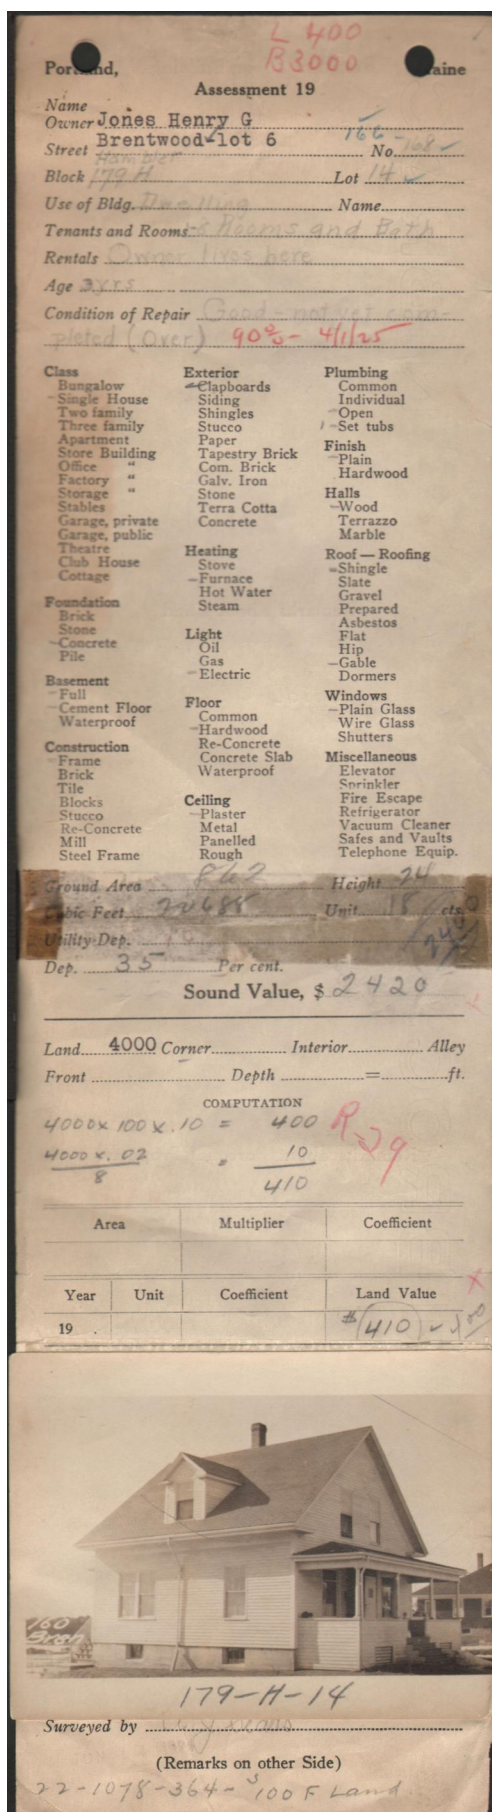 L 400
B3000
Portland, Maine
Assessment 19
Name
Owner Jones Henry G
Street Brentwood lot 6 No. 166-168
Block 179 H Lot 14
Use of Bldg. Dwelling Name
Tenants and Rooms Rooms and Bath
Rentals Owner lives here
Age 3 yrs
Condition of Repair Good - not yet com-
pleted (Over) 90% - 4/1/25
Class
Bungalow
Single House
Two family
Three family
Apartment
Store Building
Office "
Factory "
Storage "
Stables
Garage, private
Garage, public
Theatre
Club House
Cottage
Foundation
Brick
Stone
Concrete
Pile
Basement
Full
Cement Floor
Waterproof
Construction
Frame
Brick
Tile
Blocks
Stucco
Re-Concrete
Mill
Steel Frame
Exterior
Clapboards
Siding
Shingles
Stucco
Paper
Tapestry Brick
Com. Brick
Galv. Iron
Stone
Terra Cotta
Concrete
Heating
Stove
Furnace
Hot Water
Steam
Light
Oil
Gas
Electric
Floor
Common
Hardwood
Re-Concrete
Concrete Slab
Waterproof
Ceiling
Plaster
Metal
Panelled
Rough
Plumbing
Common
Individual
Open
1 Set tubs
Finish
Plain
Hardwood
Halls
Wood
Terrazzo
Marble
Roof — Roofing
Shingle
Slate
Gravel
Prepared
Asbestos
Flat
Hip
Gable
Dormers
Windows
Plain Glass
Wire Glass
Shutters
Miscellaneous
Elevator
Sprinkler
Fire Escape
Refrigerator
Vacuum Cleaner
Safes and Vaults
Telephone Equip.
Ground Area 862 Height 24
Cubic Feet 20688 Unit 18 cts.
Utility Dep.
Dep. 35 Per cent.
Sound Value, $ 2420
Land 4000 Corner Interior Alley
Front Depth = ft.
COMPUTATION
4000 x 100 x .10 = 400
4000 x .02 = 10
8
410
R-29
Area Multiplier Coefficient
Year Unit Coefficient Land Value
19 $ 410
160
Bren
179-H-14
Surveyed by
(Remarks on other Side)
22-1078-364- $100 F Land